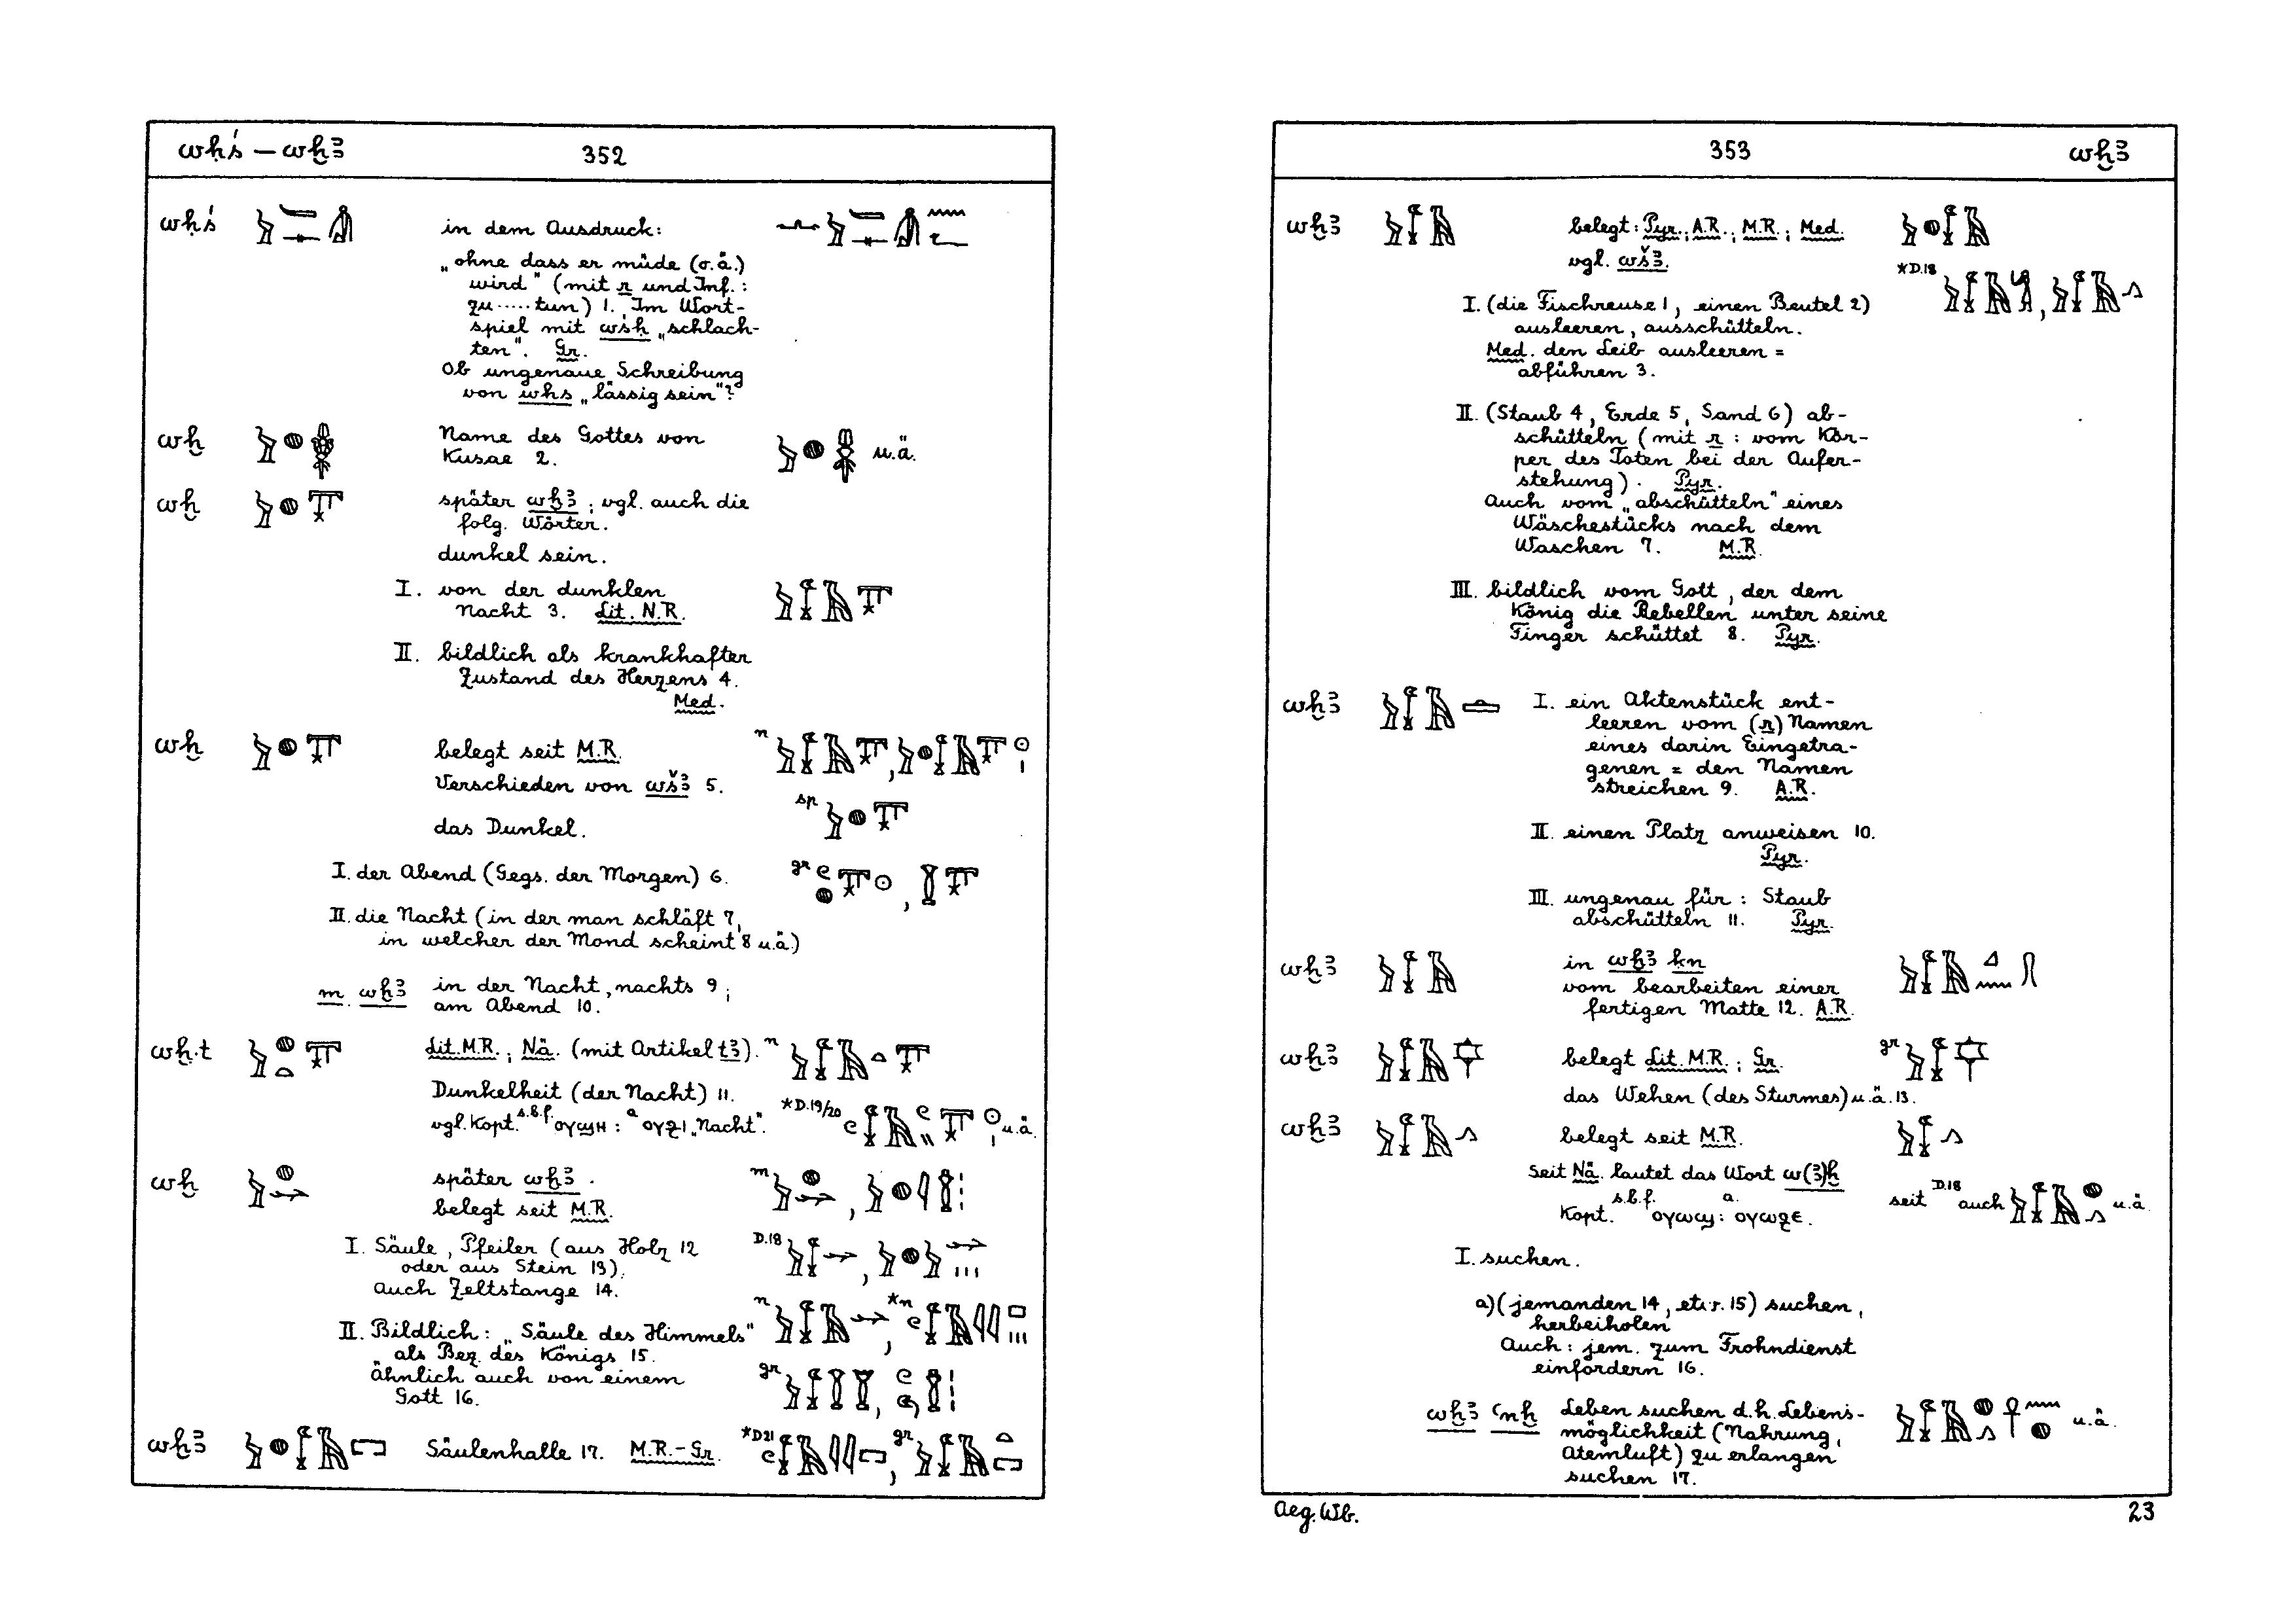 wḥś – wḫꜣ 352
wḥś in dem Ausdruck:
„ohne dass er müde (o.ä.)
wird“ (mit r und Inf.:
zu ..... tun) 1. Im Wort-
spiel mit wśḥ „schlach-
ten“. Gr.
Ob ungenaue Schreibung
von whs „lässig sein“?
wḫ Name des Gottes von u.ä.
Kusae 2.
wḫ später wḫꜣ; vgl. auch die
folg. Wörter.
dunkel sein.
I. von der dunklen
Nacht 3. Lit. N.R.
II. bildlich als krankhafter
Zustand des Herzens 4.
Med.
wḫ belegt seit M.R. n
Verschieden von wšꜣ 5.
sp
das Dunkel.
I. der Abend (Gegs. der Morgen) 6. gr
II. die Nacht (in der man schläft 7,
in welcher der Mond scheint 8 u.ä.)
m wḫꜣ in der Nacht, nachts 9;
am Abend 10.
wḫ.t Lit. M.R.; Nä. (mit Artikel tꜣ). n
Dunkelheit (der Nacht) 11.
vgl. Kopt. s.b.f. ⲟⲩϣⲏ : a ⲟⲩϩⲓ „Nacht“. *D.19/20 u.ä.
wḫ später wḫꜣ. m
belegt seit M.R.
I. Säule, Pfeiler (aus Holz 12 D.18
oder aus Stein 13).
auch Zeltstange 14.
n *n
II. Bildlich: „Säule des Himmels“
als Bez. des Königs 15.
ähnlich auch von einem gr
Gott 16.
wḫꜣ Säulenhalle 17. M.R.-Gr. *D21 gr
353 wḫꜣ
wḫꜣ belegt: Pyr.; A.R.; M.R.; Med.
vgl. wšꜣ. *D.18
I. (die Fischreuse 1, einen Beutel 2)
ausleeren, ausschütteln.
Med. den Leib ausleeren =
abführen 3.
II. (Staub 4, Erde 5, Sand 6) ab-
schütteln (mit r: vom Kör-
per des Toten bei der Aufer-
stehung). Pyr.
Auch vom „abschütteln“ eines
Wäschestücks nach dem
Waschen 7. M.R.
III. bildlich vom Gott, der dem
König die Rebellen unter seine
Finger schüttet 8. Pyr.
wḫꜣ I. ein Aktenstück ent-
leeren vom (r) Namen
eines darin Eingetra-
genen = den Namen
streichen 9. A.R.
II. einen Platz anweisen 10.
Pyr.
III. ungenau für: Staub
abschütteln 11. Pyr.
wḫꜣ in wḫꜣ ḳn
vom bearbeiten einer
fertigen Matte 12. A.R.
wḫꜣ belegt Lit. M.R.; Gr. gr
das Wehen (des Sturmes) u.ä. 13.
wḫꜣ belegt seit M.R.
Seit Nä. lautet das Wort w(ꜣ)ḫ
Kopt. s.b.f. ⲟⲩⲱϣ : a. ⲟⲩⲱϩⲉ. seit D.18 auch u.ä.
I. suchen.
a) (jemanden 14, etw. 15) suchen,
herbeiholen
Auch: jem. zum Frohndienst
einfordern 16.
wḫꜣ ꜥnḫ Leben suchen d.h. Lebens- u.ä.
möglichkeit (Nahrung,
Atemluft) zu erlangen
suchen 17.
Aeg. Wb. 23